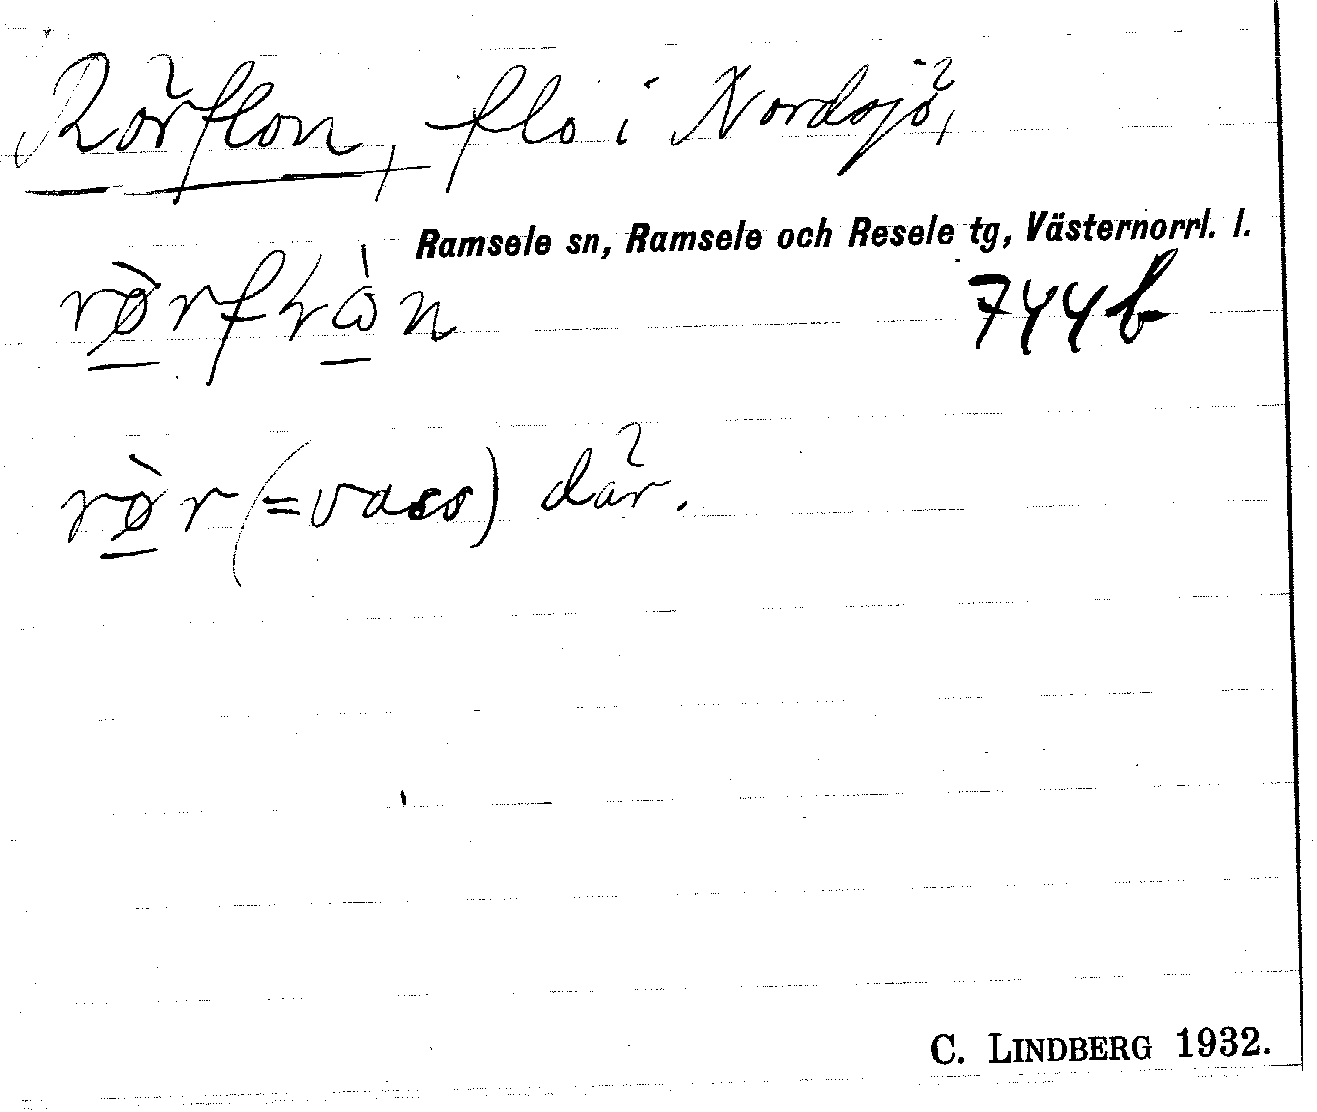 Rörflon, flo i Nordsjö,
Ramsele sn, Ramsele och Resele tg, Västernorrl. l.
744b
rør (=vass) där.
C. LINDBERG 1932.